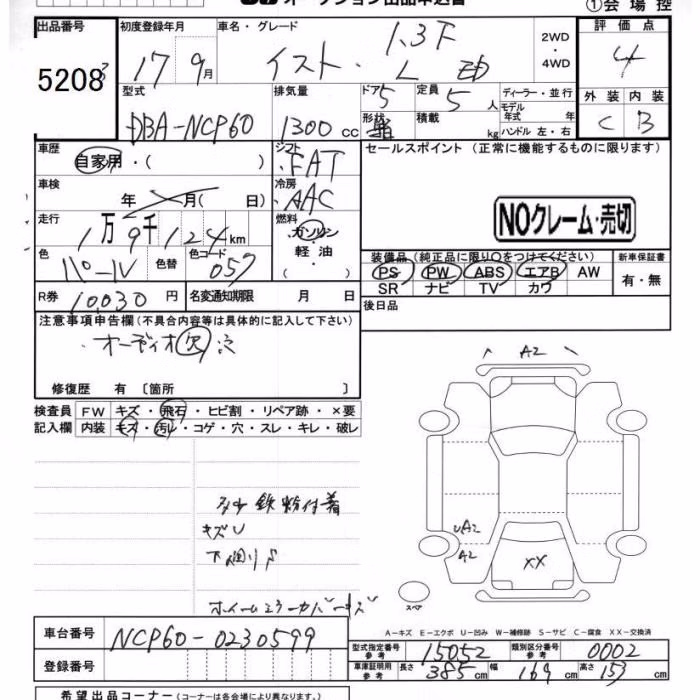 オークション出品申込書
①会場控
出品番号 初度登録年月 車名・グレード 評価点
5208 3 17年 9月 イスト・ 1.3F L 2WD・4WD 4
型式 排気量 ドア 5 定員 5人 ディーラー・並行 外装 内装
DBA-NCP60 1300cc 形状 積載 kg モデル年式 年 ハンドル 左・右 C B
車歴 自家用・( ) シフト FAT セールスポイント (正常に機能するものに限ります)
車検 年 月( 日) 冷房 AAC
走行 1万9千124km 燃料 ガソリン 軽油 ( ) NOクレーム・売切
色 パール 色替 色コード 057 装備品(純正品に限り○をつけてください) 新車保証書
PS PW ABS エアB AW 有・無
SR ナビ TV カワ
R券 10,030円 名変通知期限 月 日 後日品
注意事項申告欄(不具合内容等は具体的に記入して下さい)
・オーディオ欠
修復歴 有 〔箇所 〕
A2
検査員 FW キズ・飛石・ヒビ割・リペア跡・×要
記入欄 内装 キズ・汚レ・コゲ・穴・スレ・キレ・破レ
鉄粉付着
キズU
UA2
A2
XX
下廻りS
スペア
A-キズ E-エクボ U-凹み W-補修跡 S-サビ C-腐食 XX-交換済
車台番号 NCP60-0230599 型式指定番号 参考 15052 類別区分番号 参考 0002
登録番号 車庫証明用 参考 長さ 385cm 幅 169cm 高さ 153cm
希望出品コーナー(コーナーは各会場により異なります。)